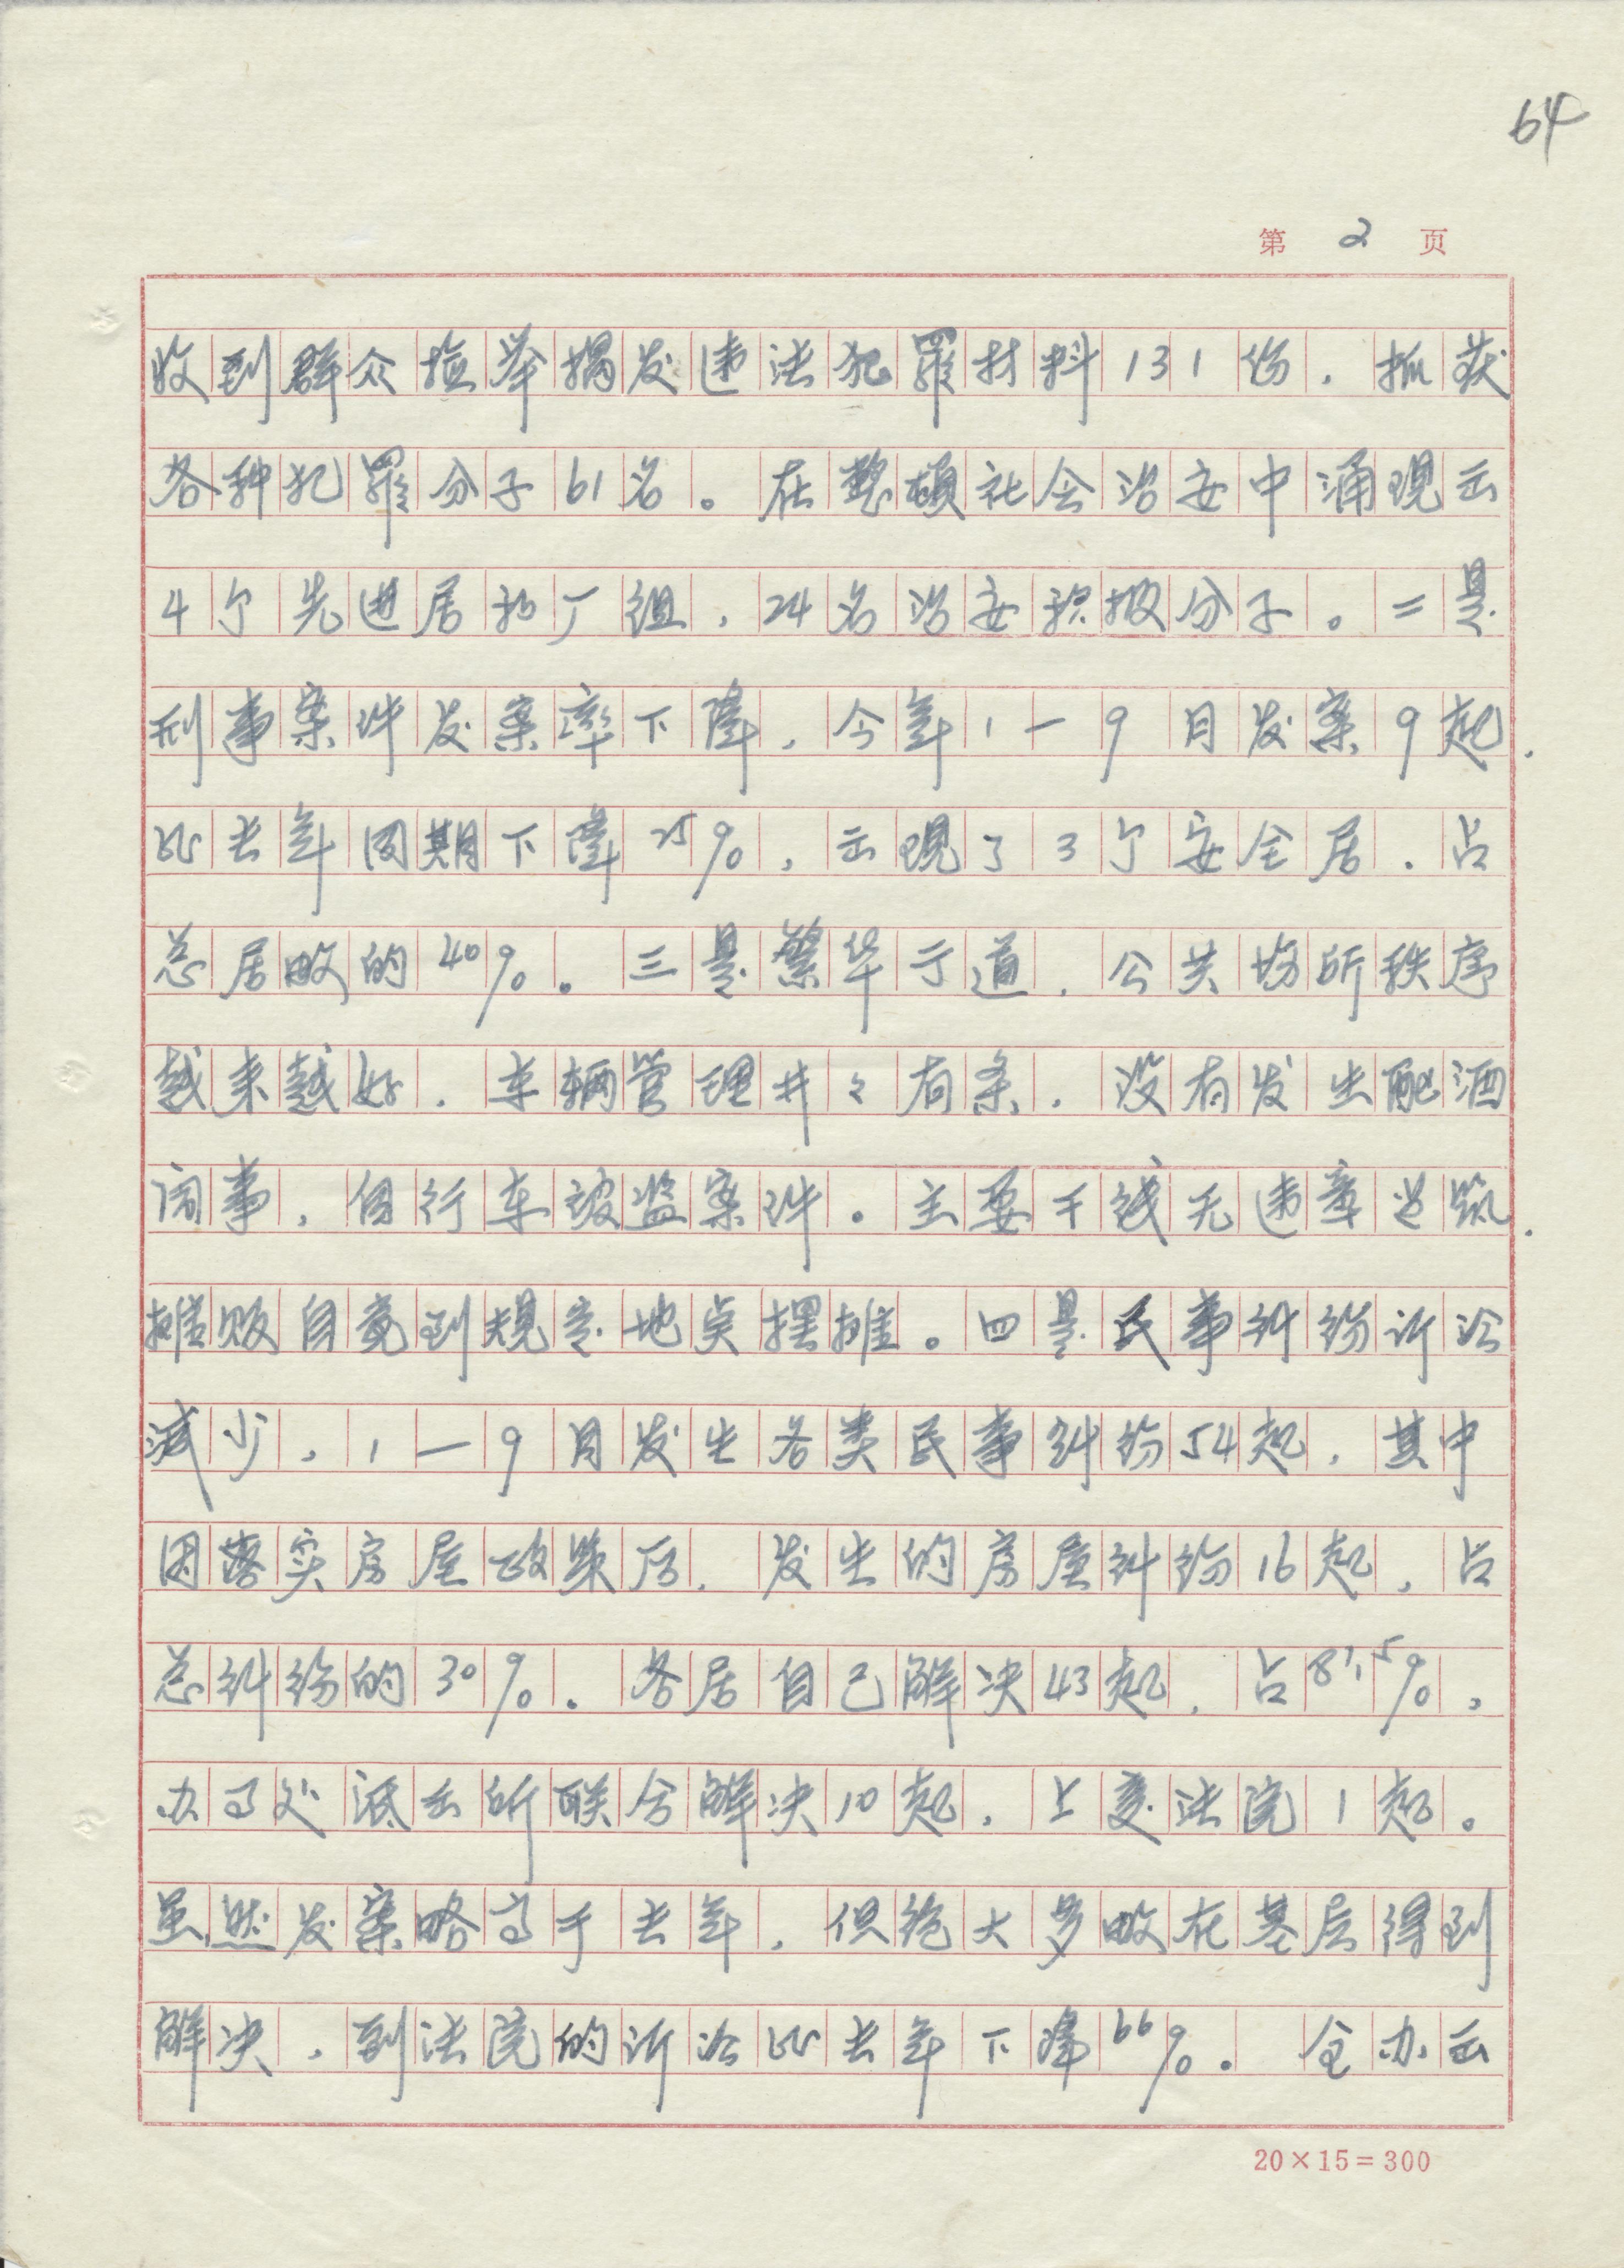 64
第 2 页
收到群众检举揭发违法犯罪材料131份,抓获
各种犯罪分子61名。在整顿社会治安中涌现出
4个先进居和厂组,24名治安积极分子。二是
刑事案件发案率下降,今年1一9月发案9起,
比去年同期下降25%,出现了3个安全居,占
总居数的40%。三是繁华于道,公共场所秩序
越来越好,车辆管理井々有条,没有发生酗酒
闹事,自行车被盗案件。主要干线无违章迠筑,
摊贩自觉到规定地点摆摊。四是民事纠纷诉讼
减少,1一9月发生各类民事纠纷54起,其中
因落实房屋政策后,发生的房屋纠纷16起,占
总纠纷的30%。各居自己解决43起,占81.5%,
办了处派出所联合解决10起,上交法院1起。
虽然发案略高于去年,但绝大多数在基层得到
解决,到法院的诉讼比去年下降66%。全办出
20×15=300